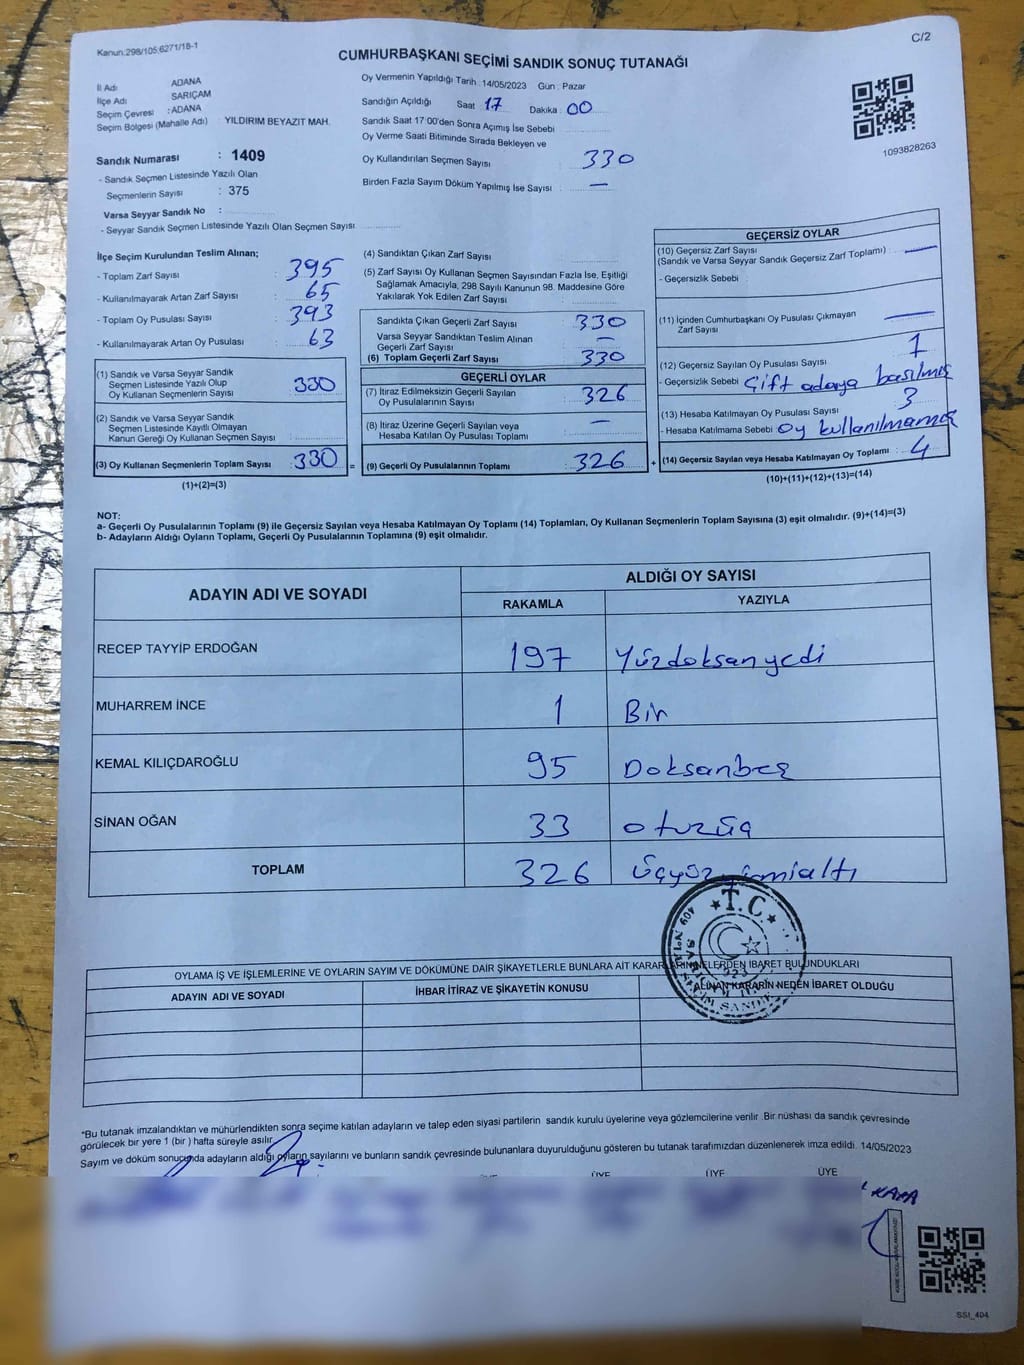 Kanun:298/105;6271/18-1
C/2
CUMHURBAŞKANI SEÇİMİ SANDIK SONUÇ TUTANAĞI
İl Adı ADANA
İlçe Adı SARIÇAM
Seçim Çevresi : ADANA
Seçim Bölgesi (Mahalle Adı) : YILDIRIM BEYAZIT MAH.
Sandık Numarası : 1409
- Sandık Seçmen Listesinde Yazılı Olan
Seçmenlerin Sayısı : 375
Varsa Seyyar Sandık No :
- Seyyar Sandık Seçmen Listesinde Yazılı Olan Seçmen Sayısı
Oy Vermenin Yapıldığı Tarih : 14/05/2023 Gün : Pazar
Sandığın Açıldığı Saat 17 Dakika : 00
Sandık Saat 17:00'den Sonra Açılmış İse Sebebi
Oy Verme Saati Bitiminde Sırada Bekleyen ve
Oy Kullandırılan Seçmen Sayısı : 330
Birden Fazla Sayım Döküm Yapılmış İse Sayısı : —
1093828263
İlçe Seçim Kurulundan Teslim Alınan;
- Toplam Zarf Sayısı : 395
- Kullanılmayarak Artan Zarf Sayısı : 65
- Toplam Oy Pusulası Sayısı : 393
- Kullanılmayarak Artan Oy Pusulası : 63
(1) Sandık ve Varsa Seyyar Sandık
Seçmen Listesinde Yazılı Olup
Oy Kullanan Seçmenlerin Sayısı : 330
(2) Sandık ve Varsa Seyyar Sandık
Seçmen Listesinde Kayıtlı Olmayan
Kanun Gereği Oy Kullanan Seçmen Sayısı :
(3) Oy Kullanan Seçmenlerin Toplam Sayısı : 330 =
(1)+(2)=(3)
(4) Sandıktan Çıkan Zarf Sayısı :
(5) Zarf Sayısı Oy Kullanan Seçmen Sayısından Fazla İse, Eşitliği
Sağlamak Amacıyla, 298 Sayılı Kanunun 98. Maddesine Göre
Yakılarak Yok Edilen Zarf Sayısı :
Sandıkta Çıkan Geçerli Zarf Sayısı : 330
Varsa Seyyar Sandıktan Teslim Alınan
Geçerli Zarf Sayısı : —
(6) Toplam Geçerli Zarf Sayısı : 330
GEÇERLİ OYLAR
(7) İtiraz Edilmeksizin Geçerli Sayılan
Oy Pusulalarının Sayısı : 326
(8) İtiraz Üzerine Geçerli Sayılan veya
Hesaba Katılan Oy Pusulaları Toplamı : —
(9) Geçerli Oy Pusulalarının Toplamı : 326 +
GEÇERSİZ OYLAR
(10) Geçersiz Zarf Sayısı
(Sandık ve Varsa Seyyar Sandık Geçersiz Zarf Toplamı) : —
- Geçersizlik Sebebi :
(11) İçinden Cumhurbaşkanı Oy Pusulası Çıkmayan
Zarf Sayısı : —
(12) Geçersiz Sayılan Oy Pusulası Sayısı : 1
- Geçersizlik Sebebi : Çift adaya basılmış
(13) Hesaba Katılmayan Oy Pusulası Sayısı : 3
- Hesaba Katılmama Sebebi : Oy kullanılmamış
(14) Geçersiz Sayılan veya Hesaba Katılmayan Oy Toplamı : 4
(10)+(11)+(12)+(13)=(14)
NOT:
a- Geçerli Oy Pusulalarının Toplamı (9) ile Geçersiz Sayılan veya Hesaba Katılmayan Oy Toplamı (14) Toplamları, Oy Kullanan Seçmenlerin Toplam Sayısına (3) eşit olmalıdır. (9)+(14)=(3)
b- Adayların Aldığı Oyların Toplamı, Geçerli Oy Pusulalarının Toplamına (9) eşit olmalıdır.
ADAYIN ADI VE SOYADI
ALDIĞI OY SAYISI
RAKAMLA YAZIYLA
RECEP TAYYİP ERDOĞAN 197 Yüzdoksanyedi
MUHARREM İNCE 1 Bir
KEMAL KILIÇDAROĞLU 95 Doksanbeş
SİNAN OĞAN 33 otuzüç
TOPLAM 326 Üçyüzyirmialtı
T.C.
OYLAMA İŞ VE İŞLEMLERİNE VE OYLARIN SAYIM VE DÖKÜMÜNE DAİR ŞİKAYETLERLE BUNLARA AİT KARARLARIN NELERDEN İBARET BULUNDUKLARI
ADAYIN ADI VE SOYADI
İHBAR İTİRAZ VE ŞİKAYETİN KONUSU
ALINAN KARARIN NEDEN İBARET OLDUĞU
*Bu tutanak imzalandıktan ve mühürlendikten sonra seçime katılan adayların ve talep eden siyasi partilerin sandık kurulu üyelerine veya gözlemcilerine verilir. Bir nüshası da sandık çevresinde
görülecek bir yere 1 (bir) hafta süreyle asılır.
Sayım ve döküm sonucunda adayların aldığı oyların sayılarını ve bunların sandık çevresinde bulunanlara duyurulduğunu gösteren bu tutanak tarafımızdan düzenlenerek imza edildi. 14/05/2023
ÜYE ÜYE ÜYE ÜYE
KARA
SSI_404